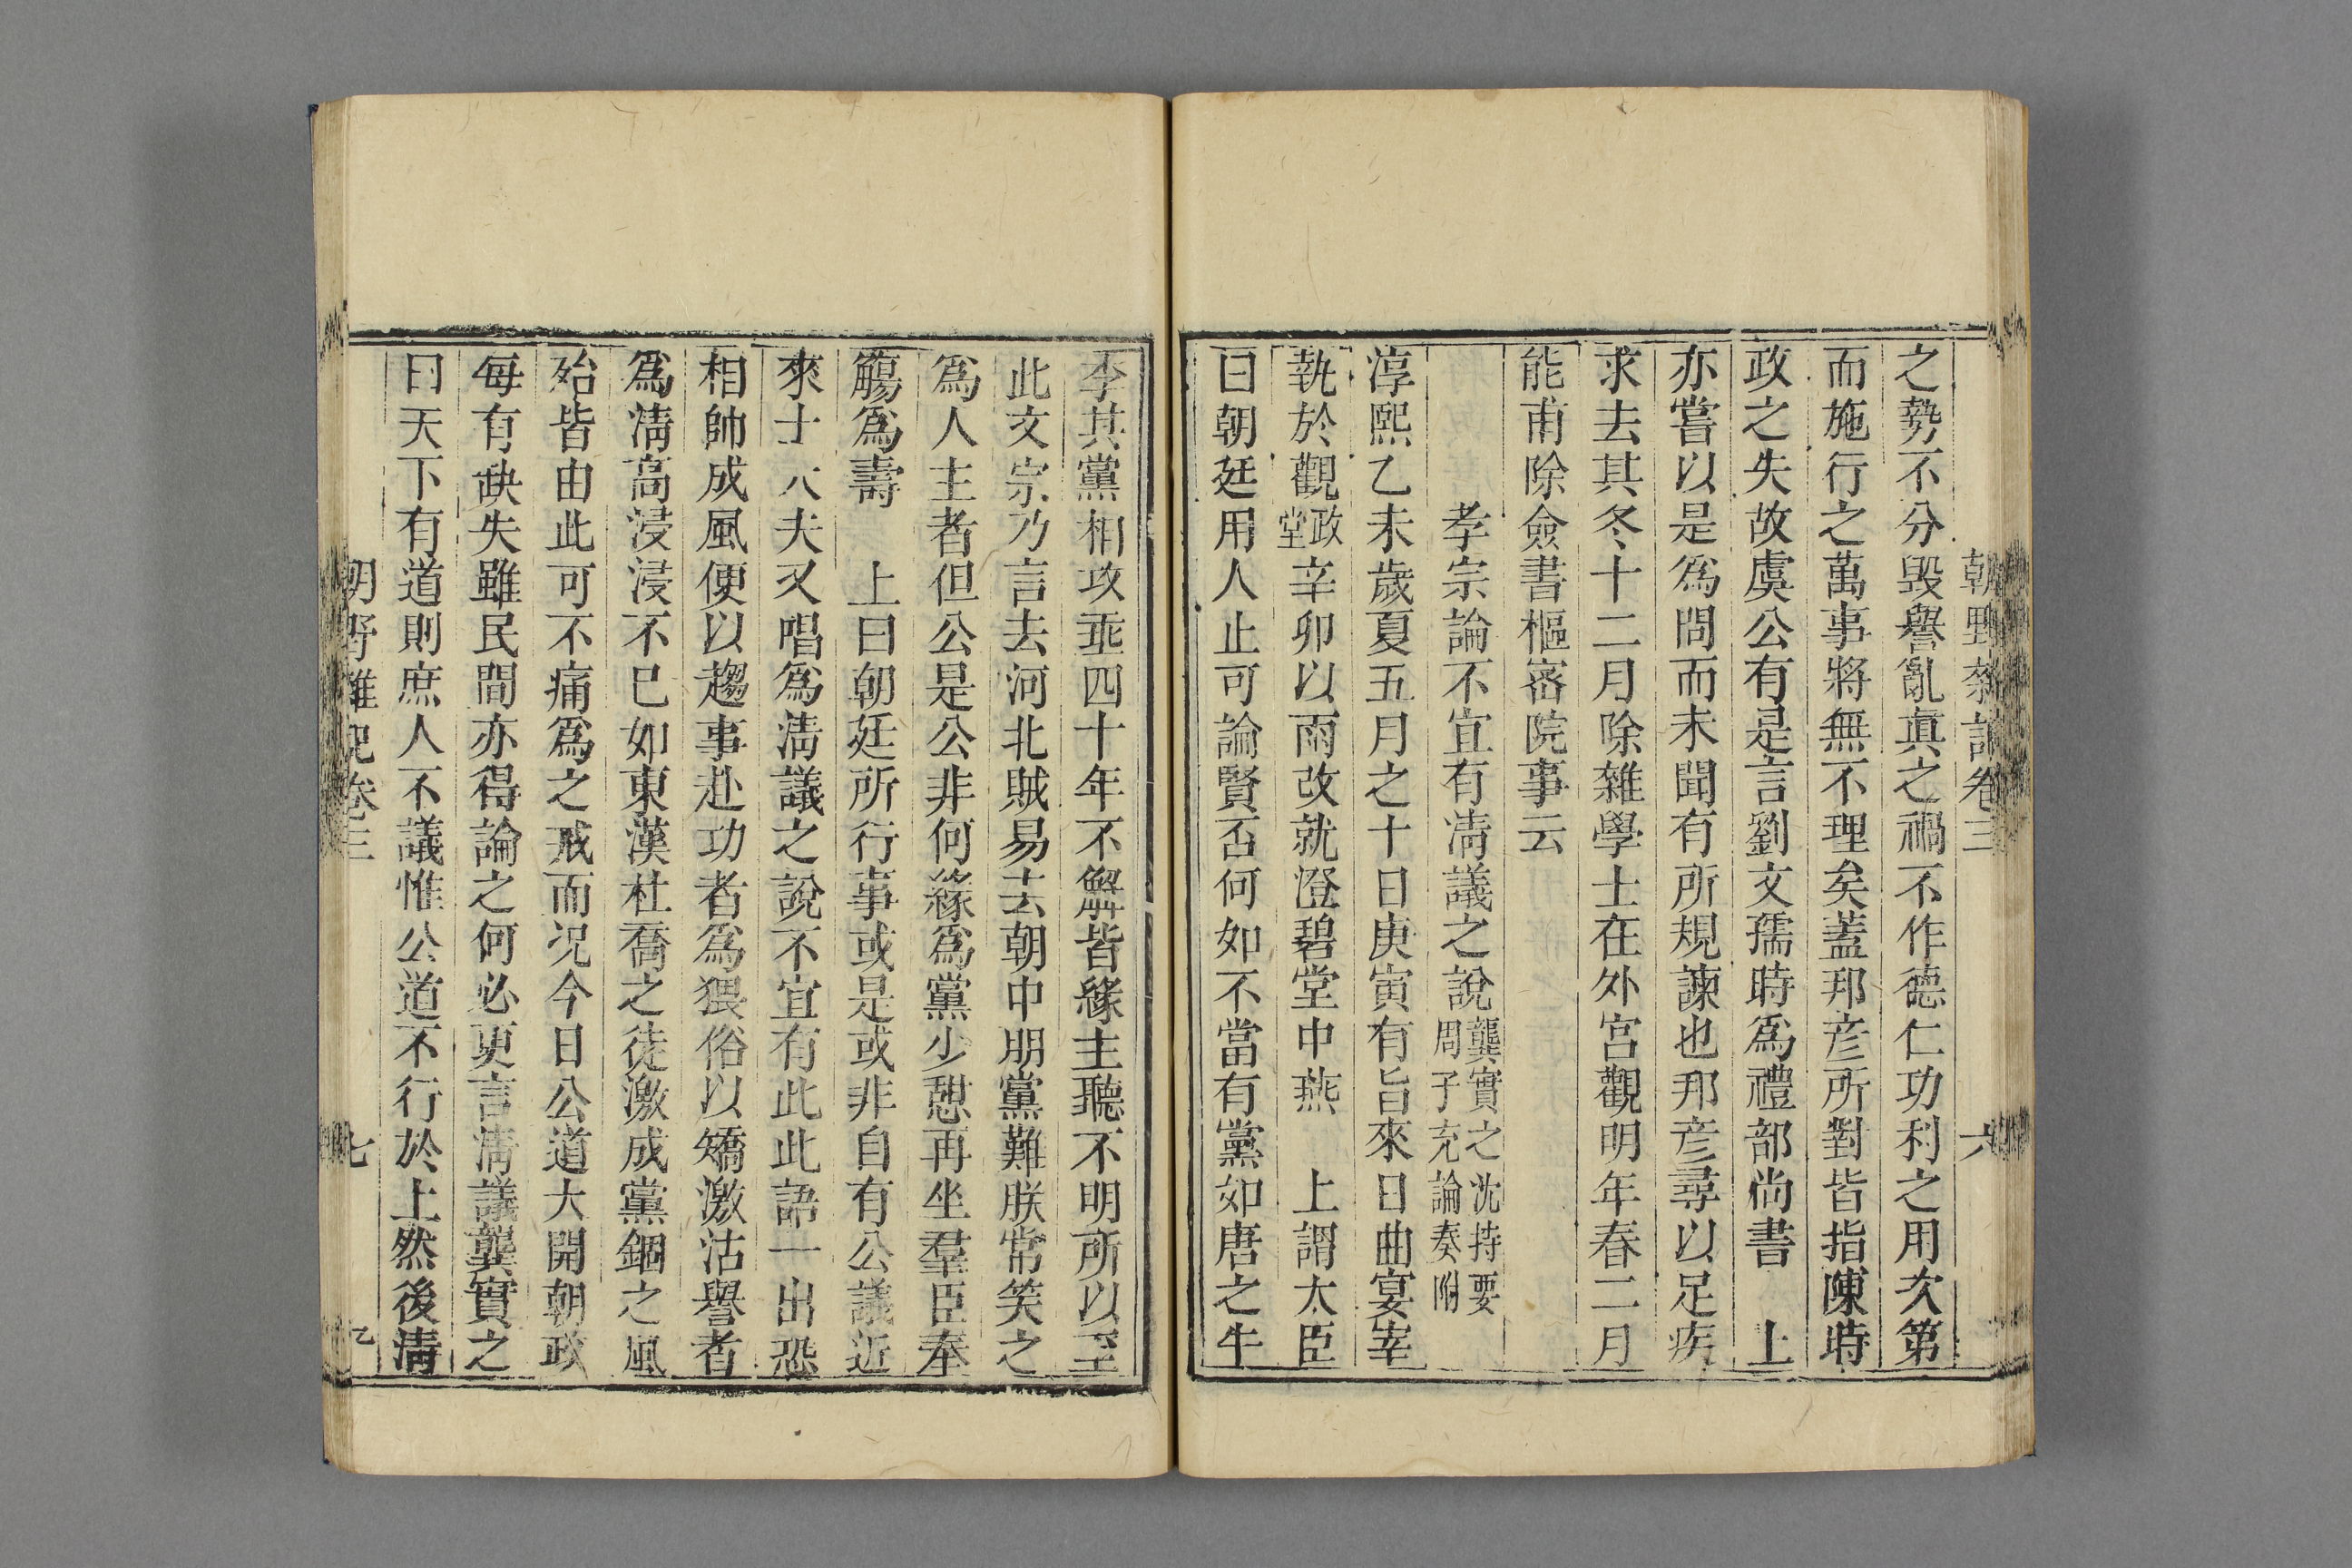 朝野雜記卷三 六
之勢不分毀譽亂真之禍不作德仁功利之用次第
而施行之萬事將無不理矣蓋邦彦所對皆指陳時
政之失故虞公有是言劉文孺時爲禮部尚書 上
亦嘗以是爲問而未聞有所規諫也邦彦尋以足疾
求去其冬十二月除雜學士在外宮觀明年春二月
能甫除僉書樞密院事云
孝宗論不宜有清議之說 龔實之沈持要周子充論奏附
淳熙乙未歲夏五月之十日庚寅有旨來日曲宴宰
執於觀政堂辛卯以雨改就澄碧堂中燕 上謂太臣
曰朝廷用人止可論賢否何如不當有黨如唐之牛
李其黨相攻垂四十年不解皆緣主聽不明所以至
此文宗乃言去河北賊易去朝中朋黨難朕常笑之
爲人主者但公是公非何緣爲黨少憩再坐羣臣奉
觴爲壽 上曰朝廷所行事或是或非自有公議近
來士大夫又唱爲清議之說不宜有此此語一出恐
相帥成風便以趨事赴功者爲猥俗以矯激沽譽者
爲清高浸浸不已如東漢杜喬之徒激成黨錮之風
殆皆由此可不痛爲之戒而况今日公道大開朝政
每有缺失雖民間亦得論之何必更言清議龔實之
曰天下有道則庶人不議惟公道不行於上然後清
朝野雜記卷三 七